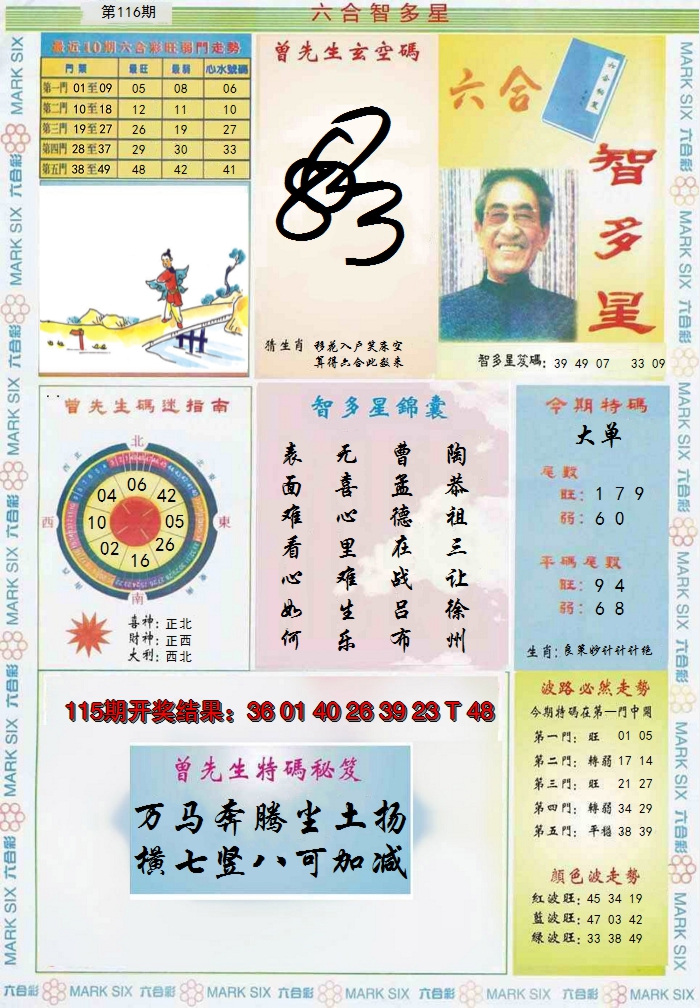 第116期
六合智多星
最近10期六合彩旺弱門走勢
門類 最旺 最弱 心水號碼
第一門 01至09 05 08 06
第二門 10至18 12 11 10
第三門 19至27 26 19 27
第四門 28至37 29 30 33
第五門 38至49 48 42 41
曾先生玄空碼
猜生肖 移花入户笑朱空
算得六合此数来
六合
六合秘笈
智多星
智多星笈碼: 39 49 07 33 09
曾先生碼迷指南
北
西
東
南
06
04 42
10 05
02 26
16
喜神: 正北
財神: 正西
大利: 西北
智多星錦囊
陶恭祖三让徐州
曹孟德在战吕布
无喜心里难生乐
表面难看心如何
今期特碼
大单
尾數
旺: 1 7 9
弱: 6 0
平碼尾數
旺: 9 4
弱: 6 8
生肖: 良策妙计计计绝
115期开奖结果：36 01 40 26 39 23 T 48
曾先生特碼秘笈
万马奔腾尘土扬
横七竖八可加减
波路必然走勢
今期特碼在第一門中開
第一門: 旺 01 05
第二門: 轉弱 17 14
第三門: 旺 21 27
第四門: 轉弱 34 29
第五門: 平穩 38 39
顏色波走勢
紅波旺: 45 34 19
藍波旺: 47 03 42
綠波旺: 33 38 49
六合彩 MARK SIX 六合彩 MARK SIX 六合彩 MARK SIX 六合彩 MARK SIX 六合彩